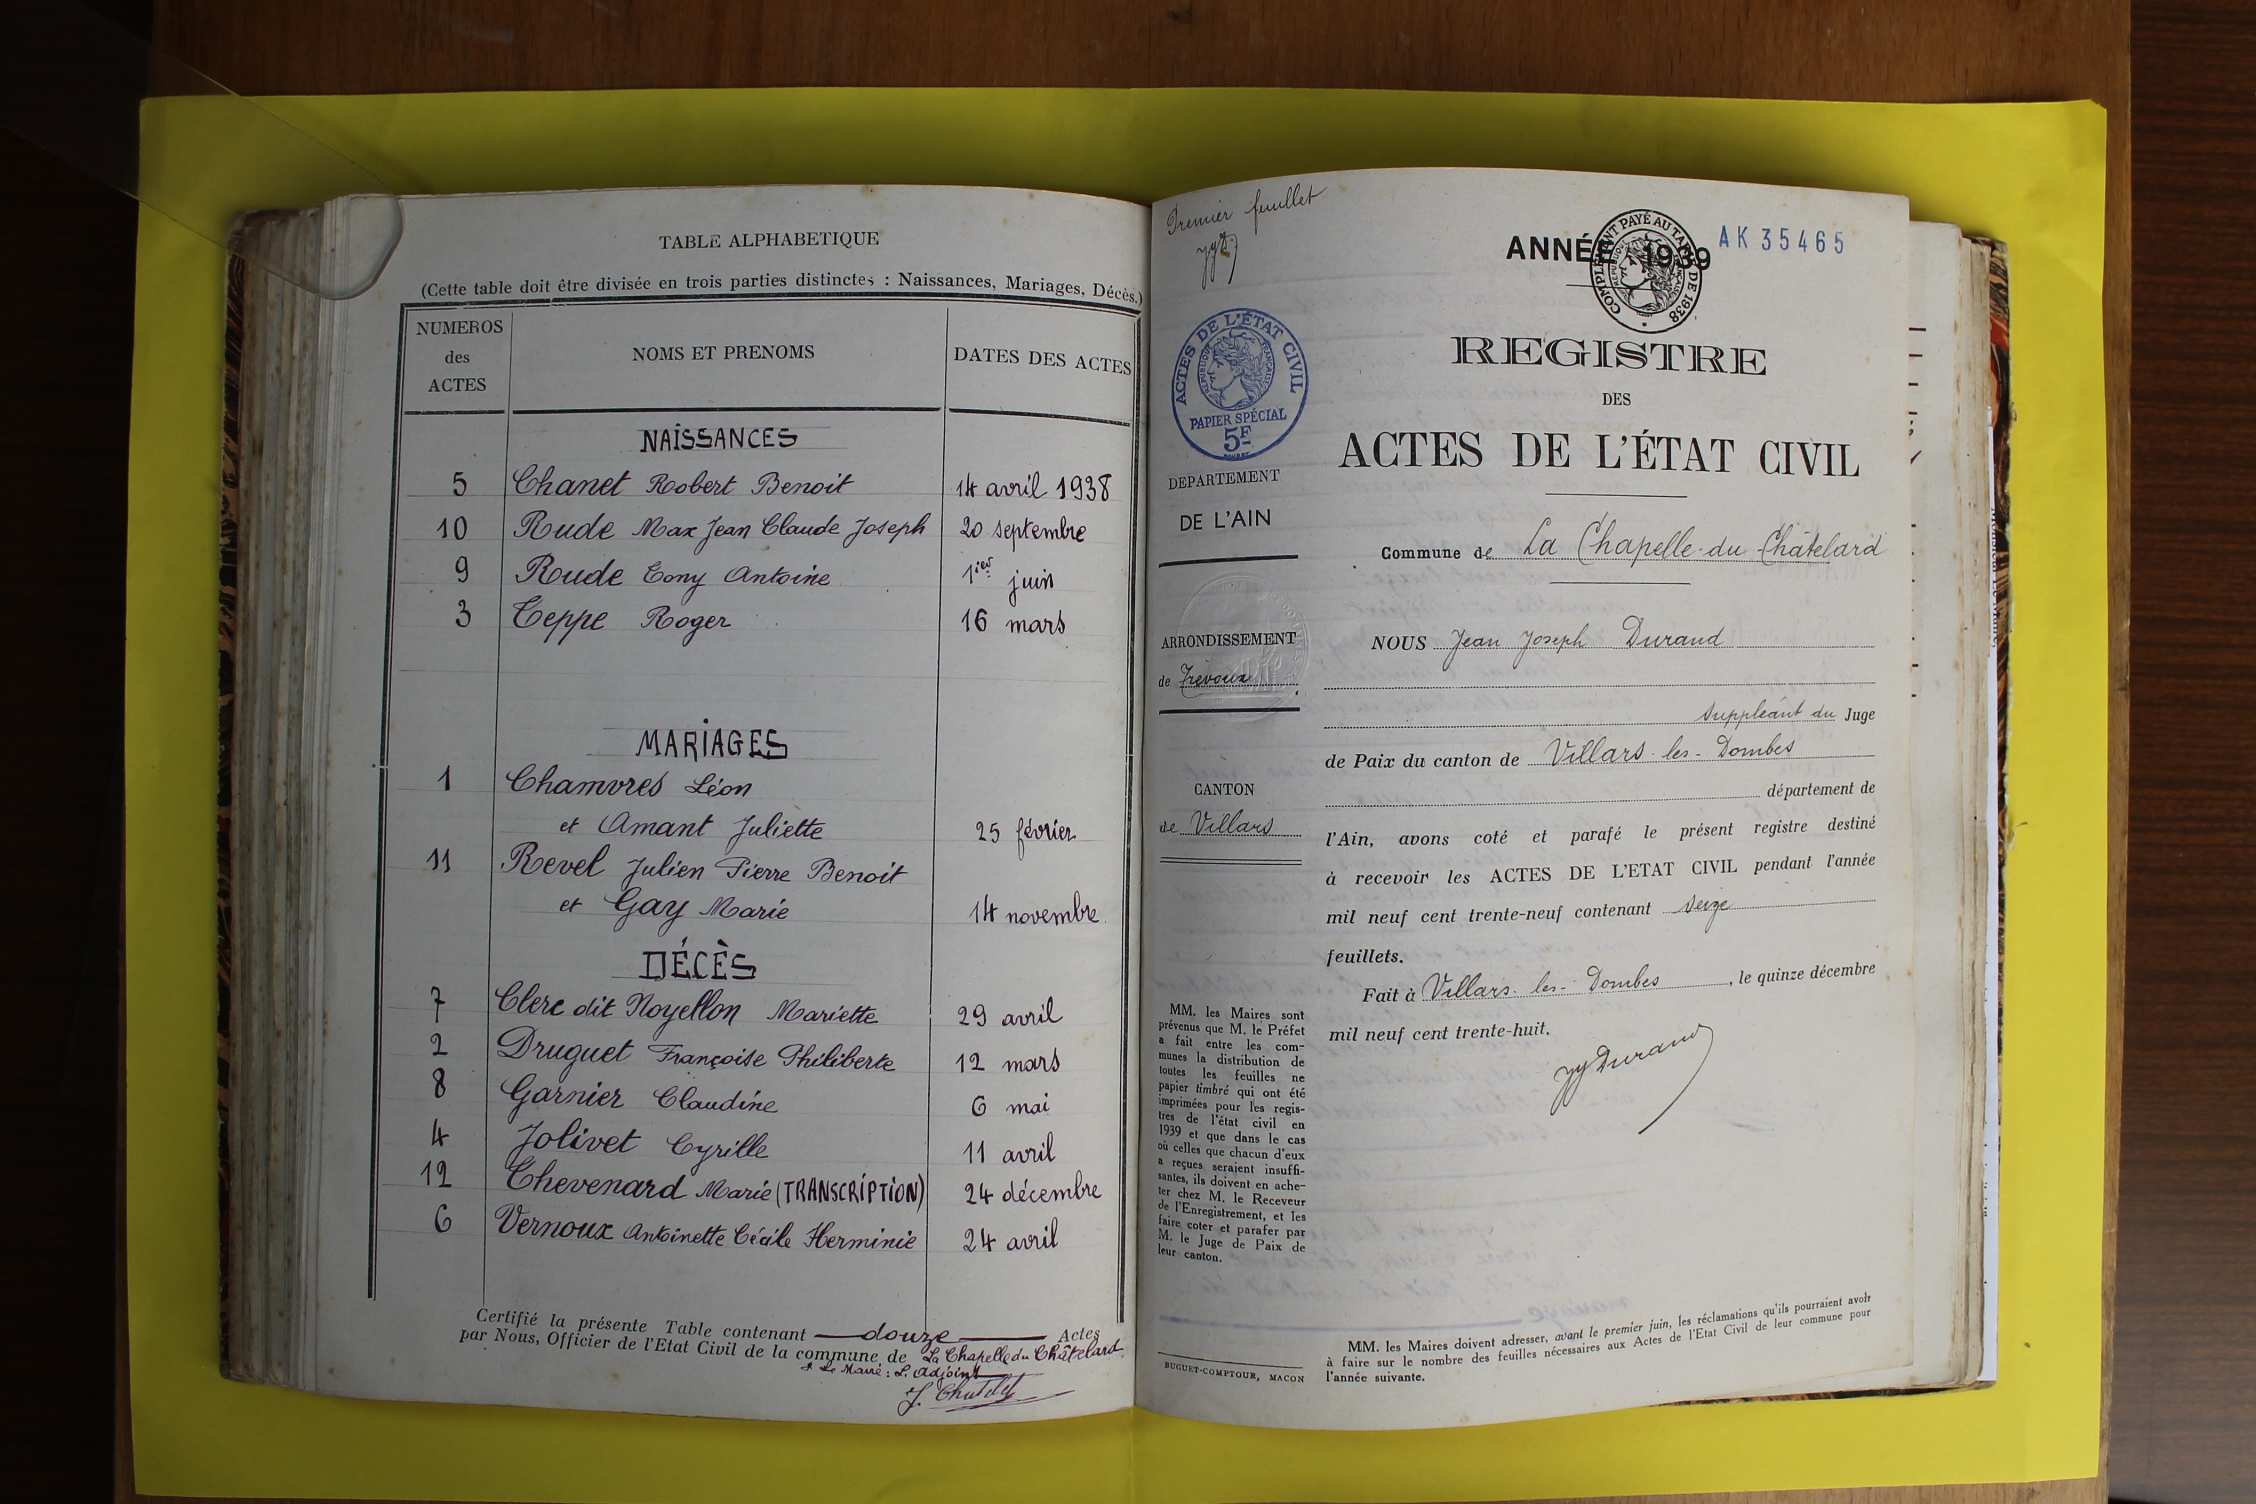 TABLE ALPHABETIQUE
(Cette table doit être divisée en trois parties distinctes : Naissances, Mariages, Décès.)
NUMEROS des ACTES NOMS ET PRENOMS DATES DES ACTES
NAISSANCES
5 Chanet Robert Benoit 14 avril 1938
10 Rude Max Jean Claude Joseph 20 septembre
9 Rude Tony Antoine 1ier juin
3 Teppe Roger 16 mars
MARIAGES
1 Chamvres Léon
et Amant Juliette 25 février
11 Revel Julien Pierre Benoit
et Gay Marie 14 novembre
DÉCÈS
7 Clerc dit Noyellon Mariette 29 avril
2 Druguet Françoise Philiberte 12 mars
8 Garnier Claudine 6 mai
4 Jolivet Cyrille 11 avril
12 Chevenard Marie (TRANSCRIPTION) 24 décembre
6 Vernoux Antoinette Cécile Herminie 24 avril
Certifié la présente Table contenant douze Actes
par Nous, Officier de l'Etat Civil de la commune de La Chapelle du Châtelard
Le Maire : L'Adjoint
Premier feuillet
ANNÉE 1939
AK 35465
COMPLÉMENT PAYÉ AU TARIF DE 1938
ACTES DE L'ÉTAT CIVIL
RÉPUBLIQUE FRANÇAISE
PAPIER SPÉCIAL
5F
DEPARTEMENT
DE L'AIN
ARRONDISSEMENT
de Trévoux
CANTON
de Villars
MM. les Maires sont
prévenus que M. le Préfet
a fait entre les com-
munes la distribution de
toutes les feuilles ne
papier timbré qui ont été
imprimées pour les regis-
tres de l'état civil en
1939 et que dans le cas
où celles que chacun d'eux
a reçues seraient insuffi-
santes, ils doivent en ache-
ter chez M. le Receveur
de l'Enregistrement, et les
faire coter et parafer par
M. le Juge de Paix de
leur canton.
BUGUET-COMPTOUR, MACON
REGISTRE
DES
ACTES DE L'ÉTAT CIVIL
Commune de La Chapelle-du-Châtelard
NOUS Jean Joseph Durand
suppléant du Juge
de Paix du canton de Villars-les-Dombes
département de
l'Ain, avons coté et parafé le présent registre destiné
à recevoir les ACTES DE L'ETAT CIVIL pendant l'année
mil neuf cent trente-neuf contenant seize
feuillets.
Fait à Villars-les-Dombes, le quinze décembre
mil neuf cent trente-huit.
JJ Durand
MM. les Maires doivent adresser, avant le premier juin, les réclamations qu'ils pourraient avoir
à faire sur le nombre des feuilles nécessaires aux Actes de l'Etat Civil de leur commune pour
l'année suivante.